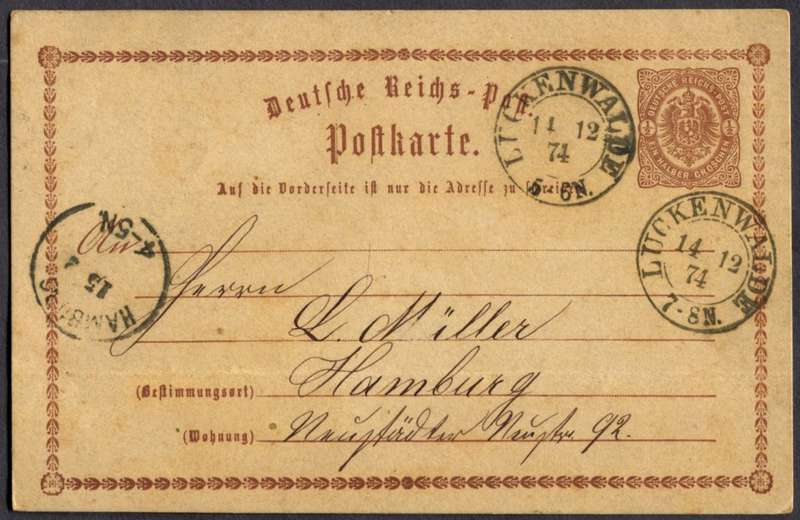 Deutsche Reichs-Post.
Postkarte.
Auf die Vorderseite ist nur die Adresse zu
DEUTSCHE REICHS-POST
½ ½
EIN HALBER GROSCHEN
LUCKENWALDE
14 12
74
5-6N.
LUCKENWALDE
14 12
74
7-8N.
HAMB
15
4-5N
An
Herrn
L. Müller
(Bestimmungsort) Hamburg
(Wohnung) Neustädter Neustr. 92.